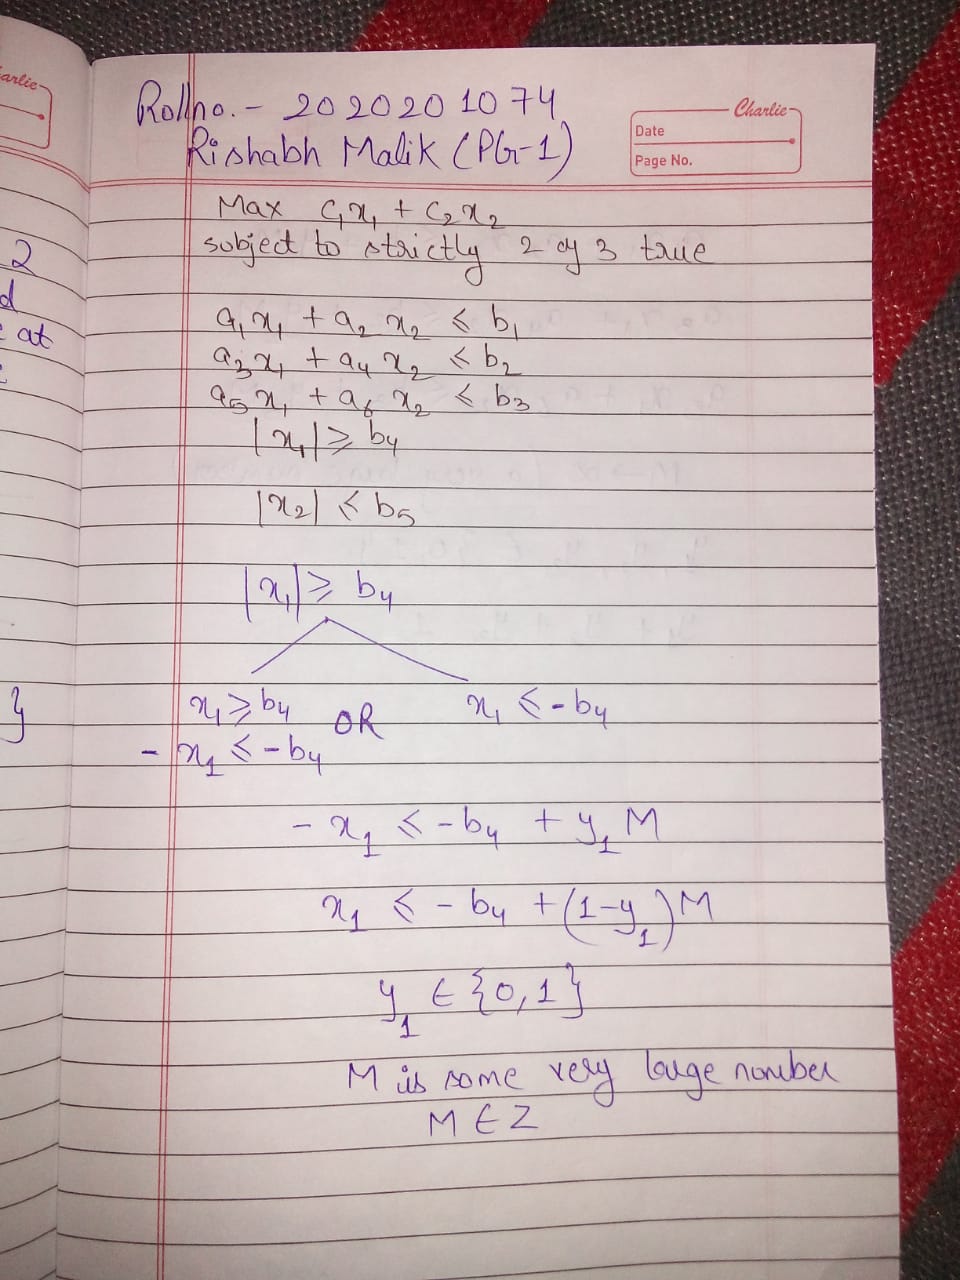 arlie
Rollno. - 20 20 20 1074
Rishabh Malik (PG-1)
Charlie
Date
Page No.
Max C₁x₁ + C₂x₂
subject to strictly 2 of 3 true
a₁x₁ + a₂ x₂ ≤ b₁
a₃x₁ + a₄ x₂ ≤ b₂
a₅x₁ + a₆ x₂ ≤ b₃
|x₁| ≥ b₄
|x₂| ≤ b₅
|x₁| ≥ b₄
x₁ ≥ b₄ OR x₁ ≤ -b₄
- x₁ ≤ -b₄
- x₁ ≤ -b₄ + y₁ M
x₁ ≤ -b₄ + (1-y₁)M
y₁ ∈ {0,1}
M is some very large number
M ∈ Z
2
d
at
}